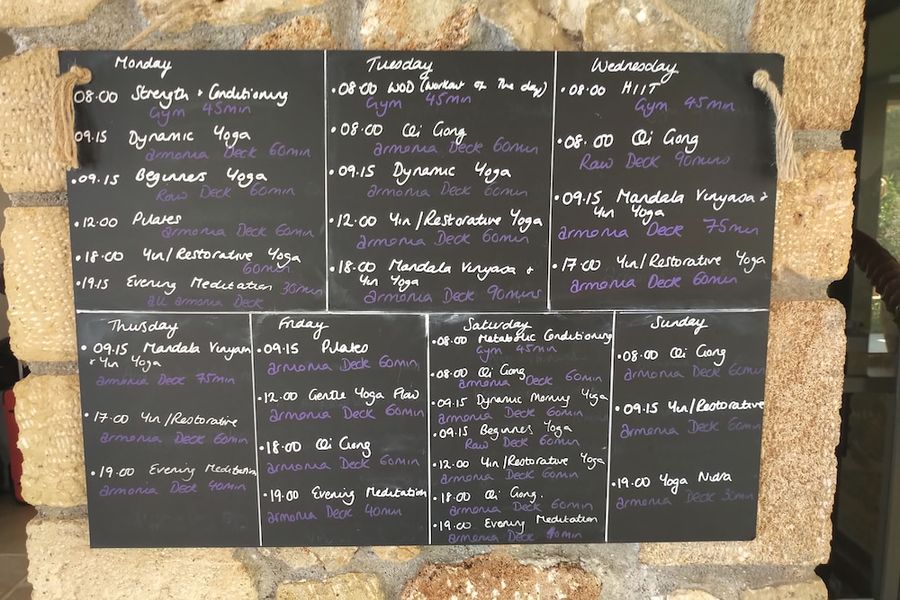 Monday
08·00 Strength + Conditioning
Gym 45min
09.15 Dynamic Yoga
armonia Deck 60min
·09.15 Beginners Yoga
Raw Deck 60min
·12:00 Pilates
armonia Deck 60min
·18:00 Yin/Restorative Yoga
60min
·19.15 Evening Meditation 30min
all armonia Deck
Tuesday
·08·00 WOD (Workout of The day)
Gym 45min
·08·00 Qi Gong
armonia Deck 60min
·09.15 Dynamic Yoga
armonia Deck 60min
·12·00 Yin/Restorative Yoga
armonia Deck 60min
·18·00 Mandala Vinyasa +
Yin Yoga
armonia Deck 90mins
Wednesday
·08:00 HIIT
Gym 45min
·08·00 Qi Gong
Raw Deck 90mins
·09.15 Mandala Vinyasa +
Yin Yoga
armonia Deck 75min
·17:00 Yin/Restorative Yoga
armonia Deck 60min
Thursday
·09.15 Mandala Vinyasa
+ Yin Yoga
armonia Deck 75min
·17·00 Yin/Restorative
armonia Deck 60min
·19.00 Evening Meditation
armonia Deck 40min
Friday
·09.15 Pilates
armonia Deck 60min
·12.00 Gentle Yoga Flow
armonia Deck 60min
·18:00 Qi Gong
armonia Deck 60min
·19:00 Evening Meditation
armonia Deck 40min
Saturday
·08:00 Metabolic Conditioning
Gym 45min
·08:00 Qi Gong
armonia Deck 60min
·09.15 Dynamic Yoga
armonia Deck 60min
·09.15 Beginners Yoga
Raw Deck 60min
·12:00 Yin/Restorative Yoga
armonia Deck 60min
·18:00 Qi Gong.
armonia Deck 60min
·19:00 Evening Meditation
armonia Deck 40min
Sunday
·08·00 Qi Gong
armonia Deck 60min
·09.15 Yin/Restorative
armonia Deck 60min
·19.00 Yoga Nidra
armonia Deck 30min